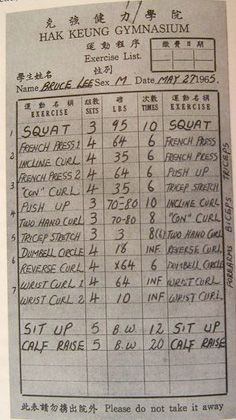 克強健力學院
HAK KEUNG GYMNASIUM
運動程序
Exercise List.
繳費日期
學生姓名 性別
Name BRUCE LEE Sex M Date MAY 27 1965.
運動名稱 EXERCISE 組數 SETS 磅 LBS 次數 TIMES 運動名稱 EXERCISE
1 SQUAT 3 95 10 SQUAT
2 FRENCH PRESS 1 4 64 6 FRENCH PRESS
3 INCLINE CURL 4 35 6 INCLINE CURL
4 FRENCH PRESS 2 4 64 6 FRENCH PRESS
5 "CON" CURL 4 35 6 PUSH UP
6 PUSH UP 3 70-80 10 INCLINE CURL
7 TWO HAND CURL 3 70-80 8 "CON" CURL
8 TRICEP STRETCH 3 3 8(6) TWO HAND CURL
9 DUMBELL CIRCLE 4 18 INF REVERSE CURL
10 REVERSE CURL 4 X64 6 DUMBELL CIRCLE
11 WRIST CURL 1 4 64 INF WRIST CURL
12 WRIST CURL 2 4 10 INF WRIST CURL
SIT UP 5 B.W. 12 SIT UP
CALF RAISE 5 B.W. 20 CALF RAISE
TRICEPS
BICEPS
FOREARMS
此券請勿携出院外 Please do not take it away